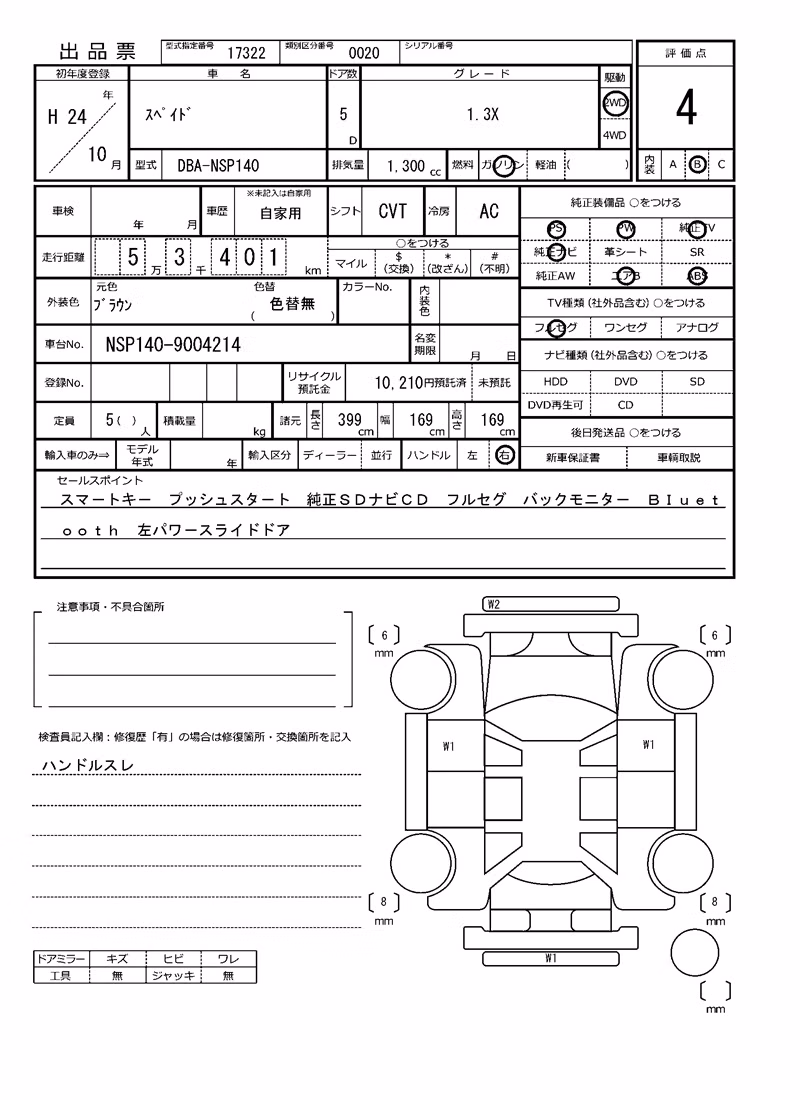 出品票 型式指定番号 17322 類別区分番号 0020 シリアル番号
初年度登録 車 名 ドア数 グレード 駆動 評価点
年 H 24 10 月 ｽﾍﾟｲﾄﾞ 5 D 1.3X 2WD 4WD 4
型式 DBA-NSP140 排気量 1,300 cc 燃料 ガソリン 軽油 ( ) 内装 A B C
車検 年 月 車歴 ※未記入は自家用 自家用 シフト CVT 冷房 AC 純正装備品 ○をつける
PS PW 純正TV
走行距離 5 万 3 千 4 0 1 km ○をつける
マイル $ (交換) * (改ざん) # (不明) 純正ナビ 革シート SR
純正AW エアB ABS
外装色 元色 ﾌﾞﾗｳﾝ 色替 ( 色替無 ) カラーNo. 内装色 TV種類 (社外品含む) ○をつける
フルセグ ワンセグ アナログ
車台No. NSP140-9004214 名変期限 月 日 ナビ種類 (社外品含む) ○をつける
登録No. リサイクル預託金 10,210円預託済 未預託 HDD DVD SD
DVD再生可 CD
定員 5( ) 人 積載量 kg 諸元 長さ 399 cm 幅 169 cm 高さ 169 cm 後日発送品 ○をつける
輸入車のみ⇒ モデル年式 年 輸入区分 ディーラー 並行 ハンドル 左 右 新車保証書 車輌取説
セールスポイント
スマートキー プッシュスタート 純正ＳＤナビＣＤ フルセグ バックモニター Ｂｌｕｅｔ
ｏｏｔｈ 左パワースライドドア
注意事項・不具合箇所
W2
6 mm
6 mm
検査員記入欄：修復歴「有」の場合は修復箇所・交換箇所を記入
W1 W1
ハンドルスレ
8 mm
8 mm
W1
ドアミラー キズ ヒビ ワレ
工具 無 ジャッキ 無
mm